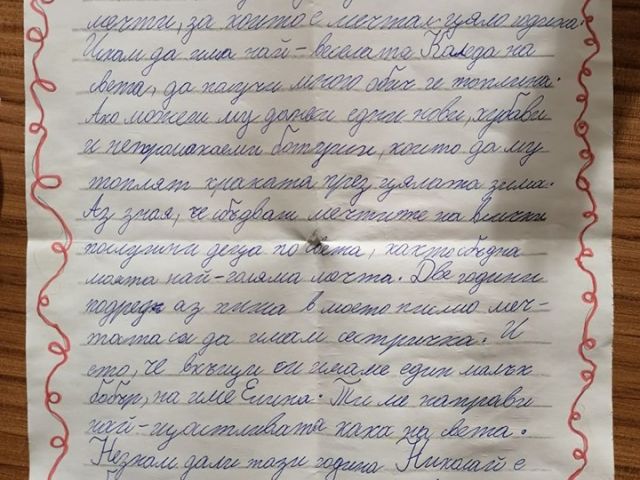 мечти, за които е мечтал цяла година.
Искам да има най-веселата Коледа на
света, да получи много обич и топлина.
Ако можеш му донеси едни нови, хубави
и непромокаеми ботуши, които да му
топлят краката през цялата зима.
Аз зная, че сбъдваш мечтите на всички
послушни деца по света, както сбъдна
моята най-голяма мечта. Две години
подред аз пиша в моето писмо меч-
тата си да имам сестричка. И
ето, че вкъщи си имаме един малък
бобър, на име Елина. Ти ме направи
най-щастливата кака на света.
Незнам дали тази година Николай е